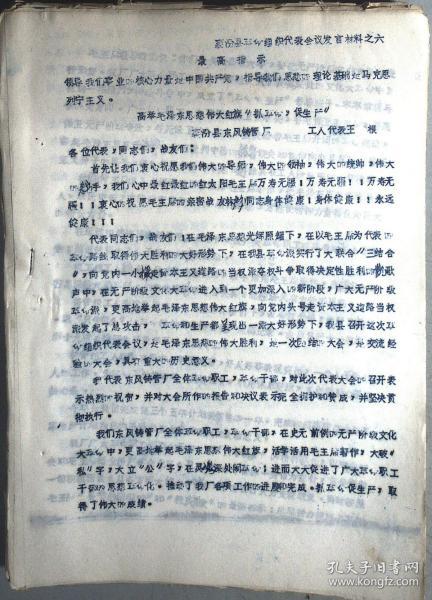 襄汾县革命组织代表会议发言材料之六
最高指示
领导我们事业的核心力量是中国共产党，指导我们思想的理论基础是马克思
列宁主义。
高举毛泽东思想伟大红旗“抓革命，促生产”
襄汾县东风铸管厂 工人代表王 根
各位代表，同志们，战友们：
首先让我们衷心祝愿我们伟大的导师，伟大的领袖，伟大的统帅，伟大
的舵手，我们心中最红最红的红太阳毛主席万寿无疆！万寿无疆！！万寿无
疆！！衷心的祝愿毛主席的亲密战友林彪同志身体健康！身体健康！！永远
健康！！！
代表同志们，战友们！在毛泽东思想光辉照耀下，在以毛主席为代表的
革命路线取得伟大胜利的大好形势下，在我县革命派实行了大联合“三结合
”，向党内一小撮走资本主义道路的当权派夺权斗争取得决定性胜利的凯歌
声中，在无产阶级文化大革命进入到一个更加深入的新阶段，广大无产阶级
革命派，更高地举起毛泽东思想伟大红旗，向党内头号走资本主义道路当权
派发起了总攻击，革命和生产都呈现出一派大好形势下，我县召开这次革
命组织代表会议，是毛泽东思想的伟大胜利，是一次团结的大会，是交流经
验的大会，具有重大的历史意义。
我代表东风铸管厂全体革命职工，革命干部，对此次代表大会的召开表
示热烈的祝贺，并对大会所作的报告和决议表示完全拥护和赞成，并坚决贯
彻执行。
我们东风铸管厂全体革命职工，革命干部，在史无前例的无产阶级文化
大革命中，更高地举起毛泽东思想伟大红旗，活学活用毛主席著作，大破“
私”字，大立“公”字，在灵魂深处闹革命；进而大大促进了广大革命职工
干部的思想革命化。推动了我厂各项工作的进展和完成。抓革命，促生产，取
得了伟大的成绩。
孔夫子旧书网
kongfz.com